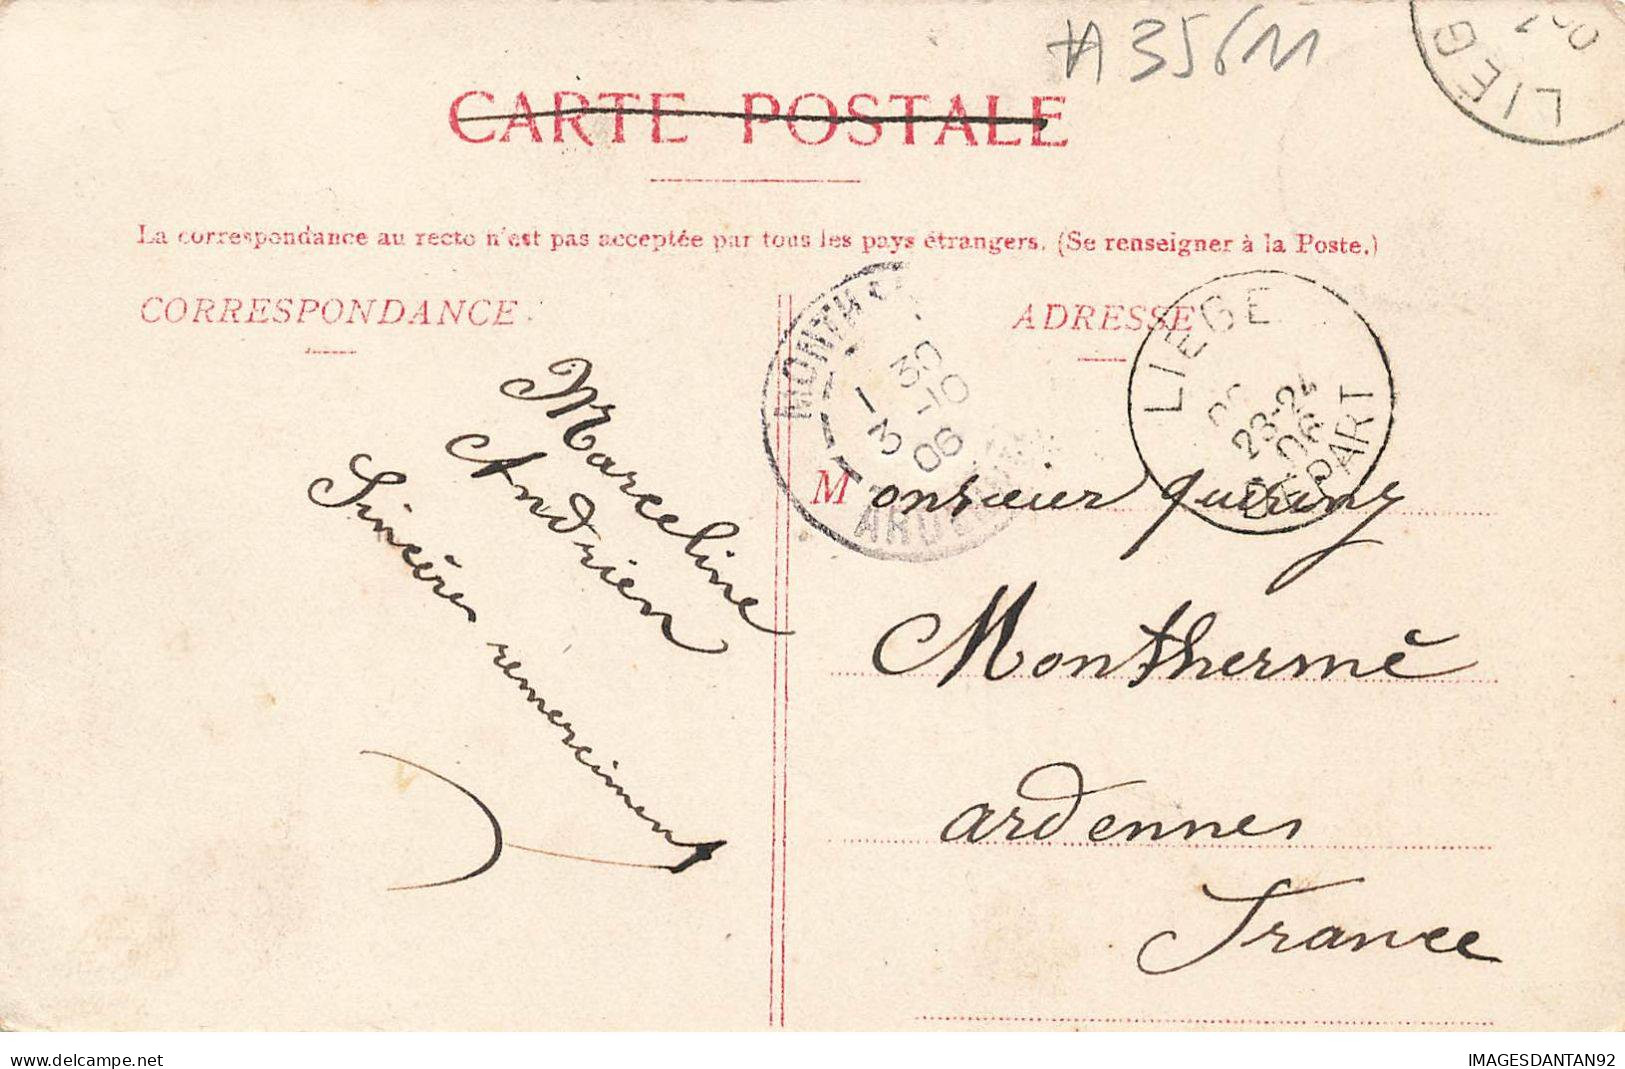 #A35611
LIÈG
CARTE POSTALE
La correspondance au recto n'est pas acceptée par tous les pays étrangers. (Se renseigner à la Poste.)
CORRESPONDANCE
ADRESSE
Marceline
Andrien
Sincères remerciment
MONTH
30-10
06
ARDENNES
LIEGE
23-24
06
DEPART
Monsieur Quiriny
Monthermé
ardennes
France
delcampe.net
IMAGESDANTAN92